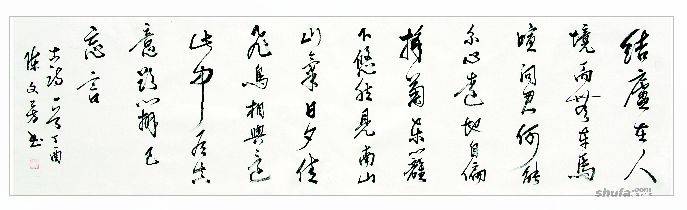 結廬在人
境而無車馬
喧问君何能
尔心遠地自偏
採菊东籬
下悠然見南山
山氣日夕佳
飛鳥相與還
此中有真
意欲辨已
忘言
古詩一首丁酉
陳文 书
shufa.com